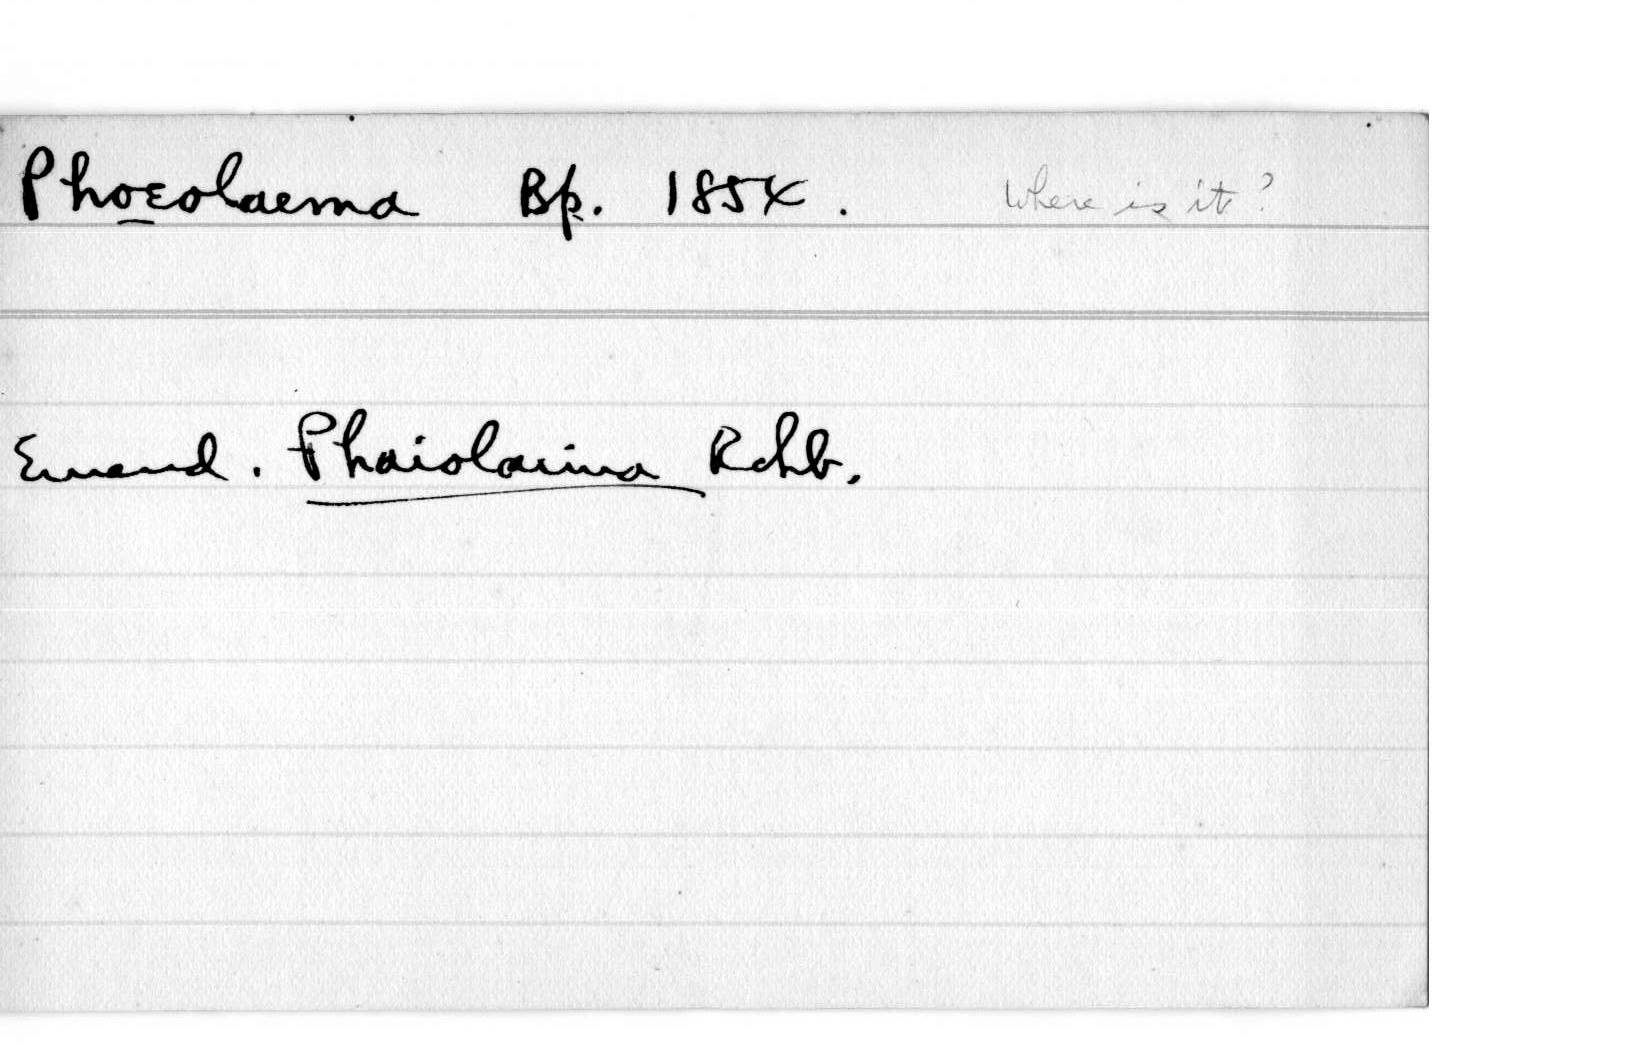 Phoeolaema Bp. 1854. Where is it?
Emend. Phaiolaima Rchb.